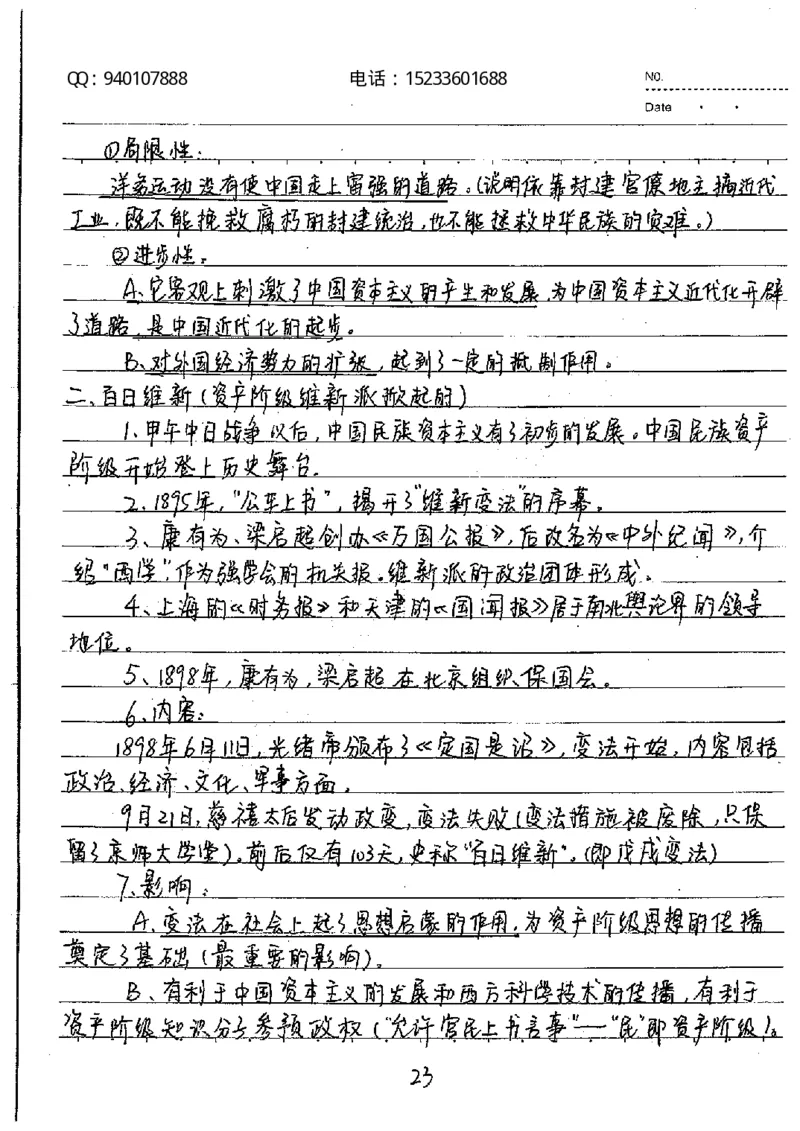 QQ：940107888 电话：15233601688 No.
Date
①局限性：
洋务运动没有使中国走上富强的道路。（说明依靠封建官僚地主搞近代
工业，既不能挽救腐朽的封建统治，也不能拯救中华民族的灾难。）
②进步性。
A、它客观上刺激了中国资本主义的产生和发展，为中国资本主义近代化开辟
了道路，是中国近代化的起步。
B、对外国经济势力的扩张，起到了一定的抵制作用。
二、百日维新（资产阶级维新派掀起的）
1、甲午中日战争以后，中国民族资本主义有了初步的发展。中国民族资产
阶级开始登上历史舞台。
2、1895年，"公车上书"，揭开了"维新变法"的序幕。
3、康有为、梁启超创办《万国公报》，后改名为《中外纪闻》，介
绍"西学"，作为强学会的机关报。维新派的政治团体形成。
4、上海的《时务报》和天津的《国闻报》居于南北舆论界的领导
地位。
5、1898年，康有为，梁启超在北京组织保国会。
6、内容：
1898年6月11日，光绪帝颁布了《定国是诏》，变法开始，内容包括
政治、经济、文化、军事方面。
9月21日，慈禧太后发动政变，变法失败（变法措施被废除，只保
留了京师大学堂）。前后仅有103天，史称"百日维新"。（即戊戌变法）
7、影响：
A、变法在社会上起了思想启蒙的作用，为资产阶级思想的传播
奠定了基础（最重要的影响）。
B、有利于中国资本主义的发展和西方科学技术的传播，有利于
资产阶级知识分子参预政权（"允许官民上书言事"——"民"即资产阶级）。
23